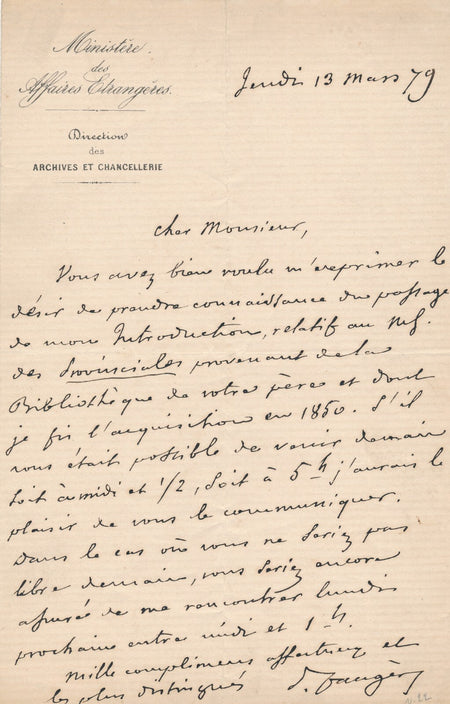 Ministère
des
Affaires Etrangères.
Direction
des
ARCHIVES ET CHANCELLERIE
Jeudi 13 Mars 79
Cher Monsieur,
Vous avez bien voulu m'exprimer le
désir de prendre connaissance du passage
de mon Introduction, relatif au MS.
des Provinciales provenant de la
Bibliothèque de votre père et dont
je fis l'acquisition en 1850. S'il
vous était possible de venir demain
soit à midi et 1/2, soit à 5 h j'aurais le
plaisir de vous le communiquer.
Dans le cas où vous ne seriez pas
libre demain, vous seriez encore
assuré de me rencontrer lundi
prochain entre midi et 1 h.
Mille complimens affectueux et
les plus distingués